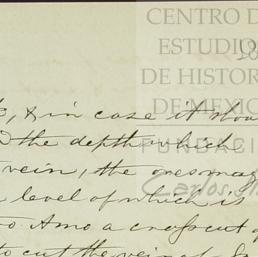 CENTRO DE
ESTUDIOS
DE HISTORIA
DE MEXICO
FUNDACI
Carlos
& in case it shou
the depth which
vein, the ores may
level of which is
Amo a crosscut
to cut the vein